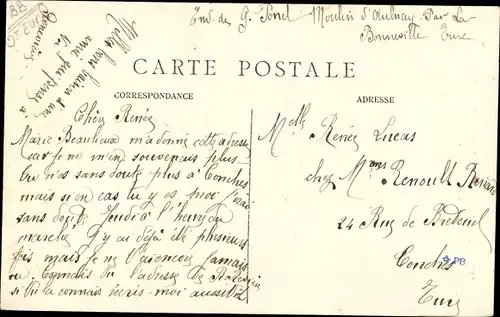 Env. de G. Ponel Moulin d'Aulnay Par La
Bonneville Eure
Mille bons baisers d'une
amie qui pense à
CARTE POSTALE
CORRESPONDANCE
ADRESSE
Chère Renée
Marie Beaulieu m'a donné cette adresse
car je ne m'en souvenais plus
tu n'es sans doute plus à Conches
mais si en cas tu y es pour
sans doute Jeudi à l'heure du
marché J'y ai déjà été plusieurs
fois mais je ne t'ai encore jamais
vu. Connais tu l'adresse de
si tu la connais écris-moi aussitôt
Melle Renée Lucas
chez Mme Renoult
24 Rue de Breteuil
Conches
Eure
PB